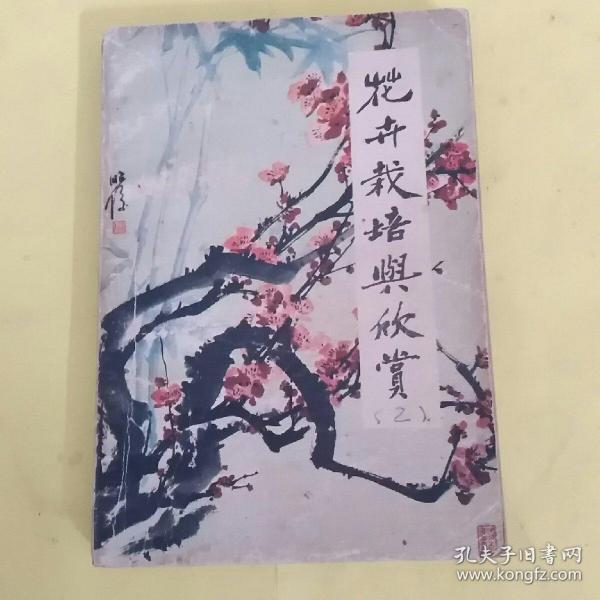 花卉栽培與欣賞
(2)
孔夫子旧书网
www.kongfz.com